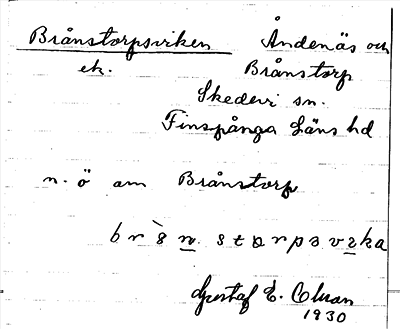 Brånstorpsviken Åndenäs och
ek. Brånstorp
Skedevi sn.
Finspånga Läns hd
n. ö om Brånstorp
Gustaf E.
1930